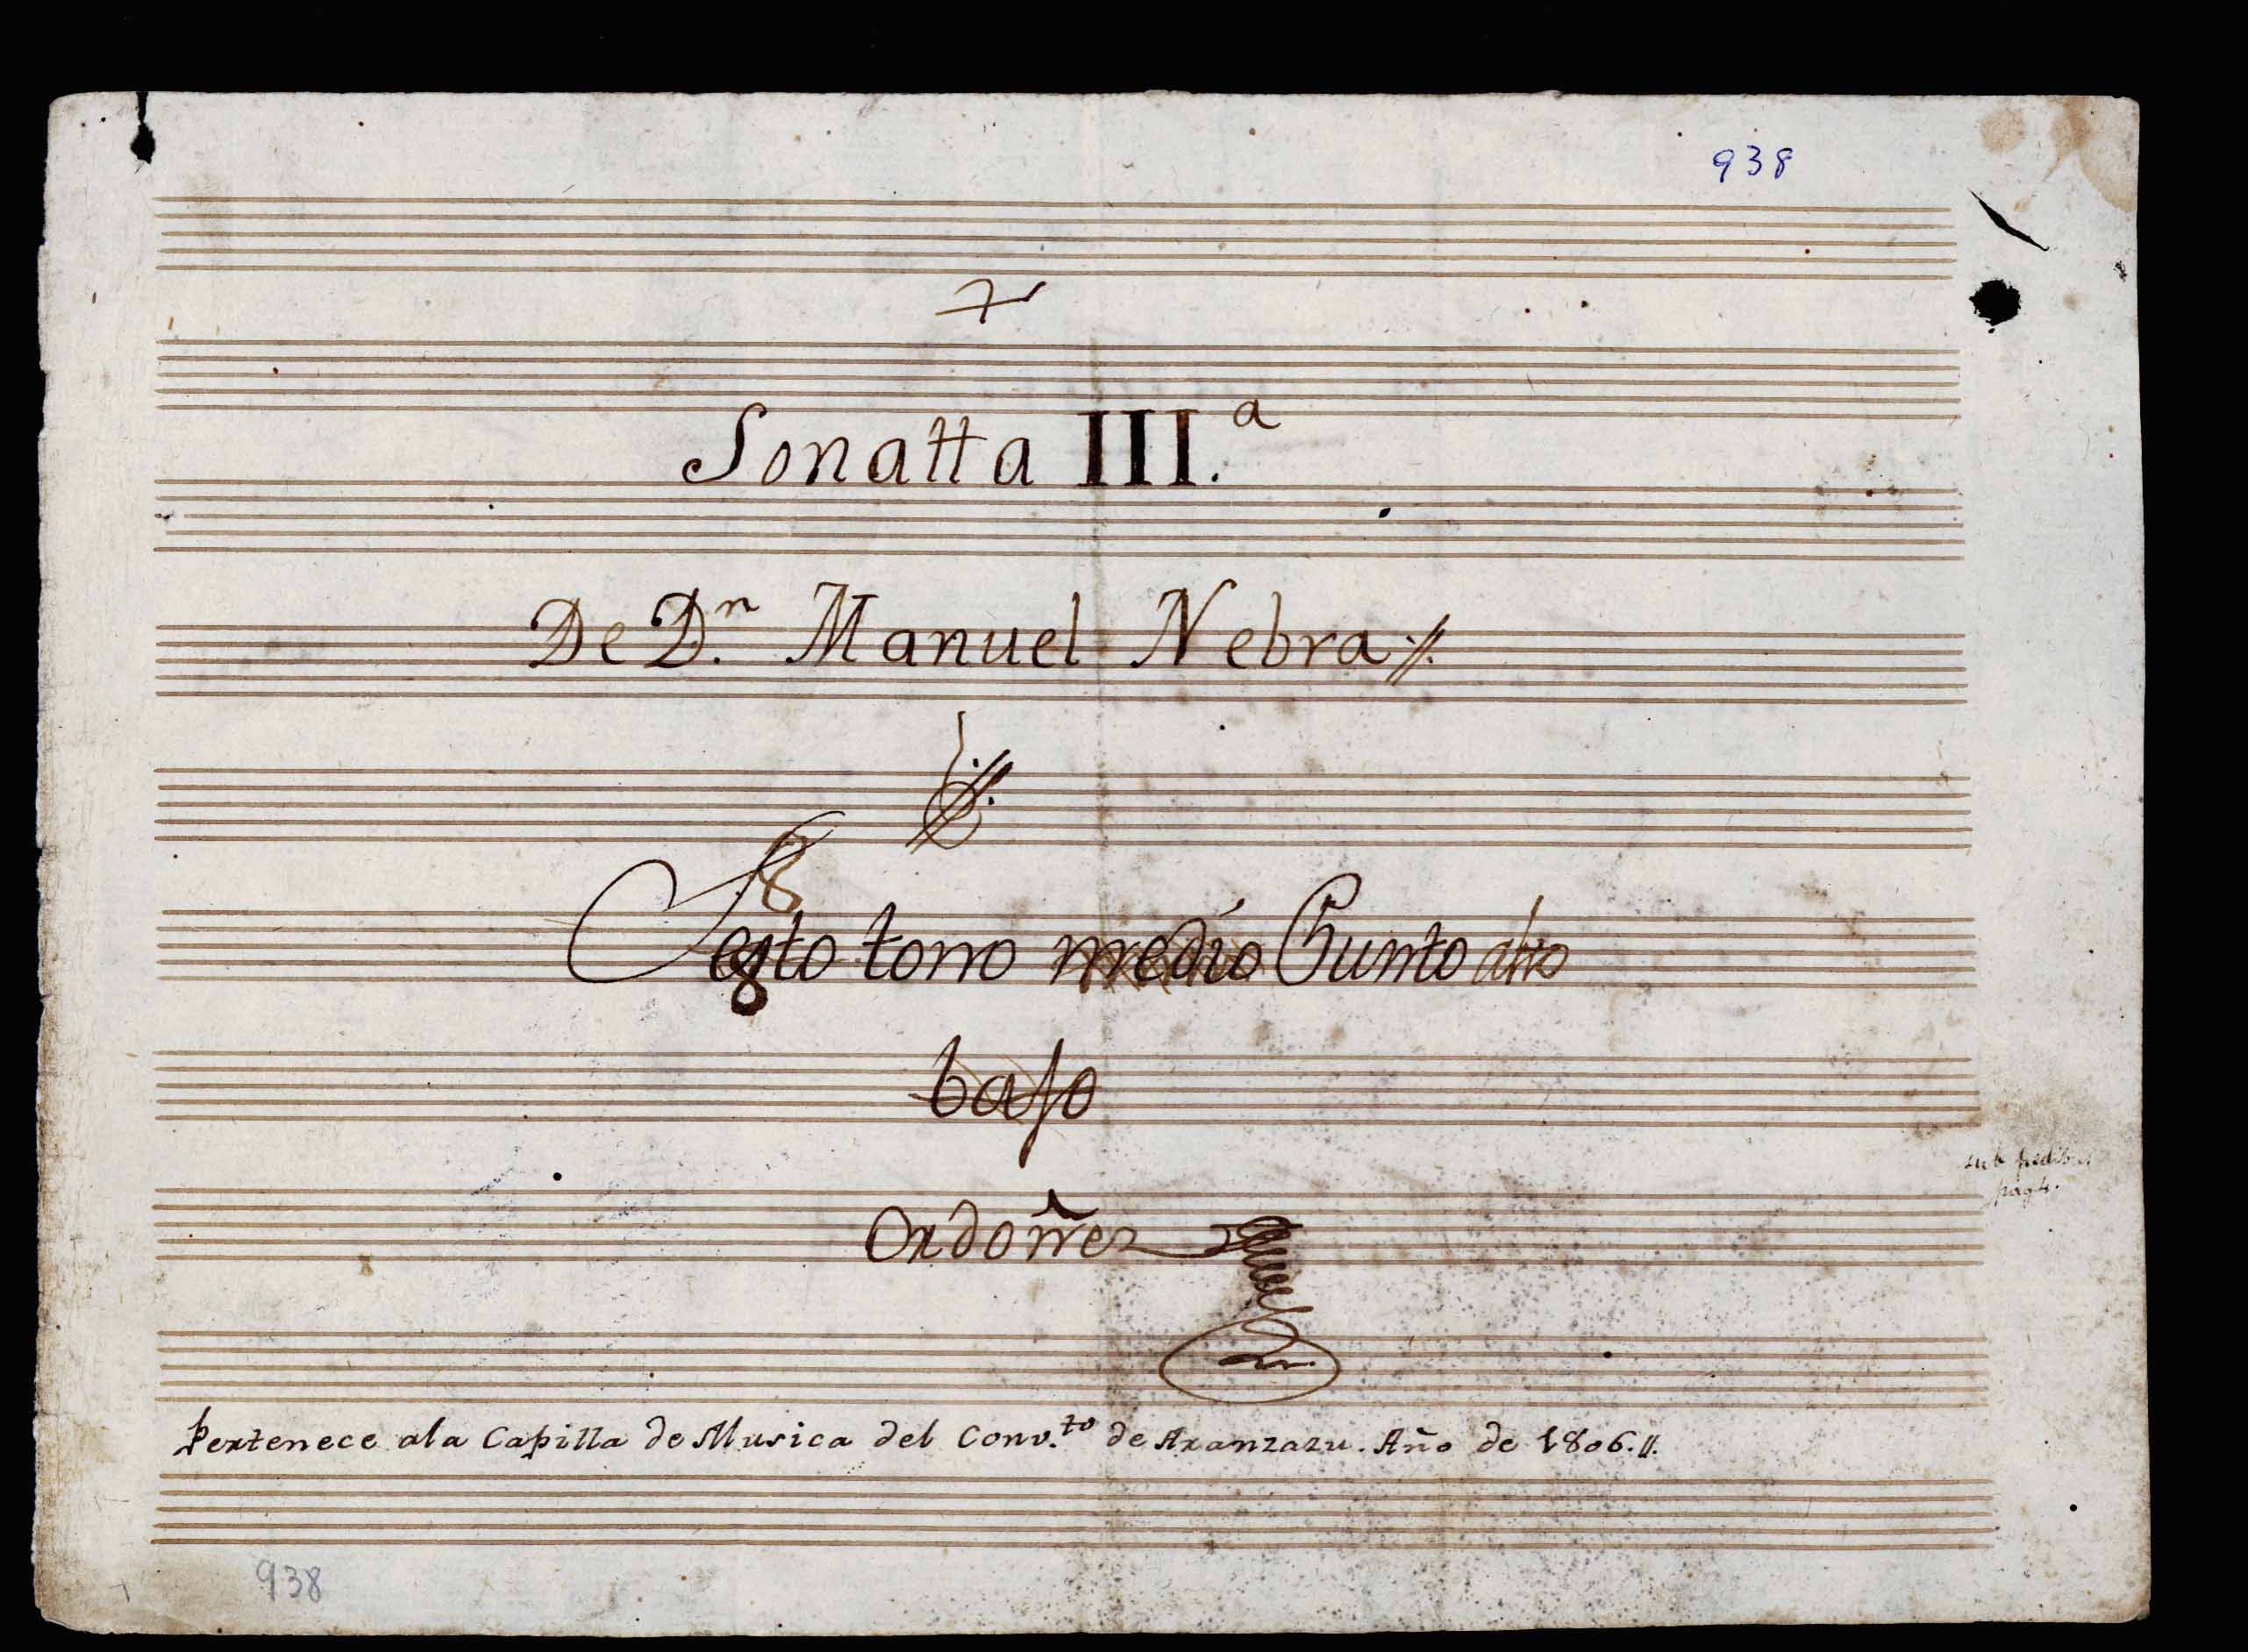 938
Sonatta III.ª
De D.ⁿ Manuel Nebra //.
8
Sesto tono medio Punto alto
bajo
Ordoñez
sub pedibus
pag 4.
Pertenece ala Capilla de Musica del Conv.to de Aranzazu. Año de 1806.//.
938